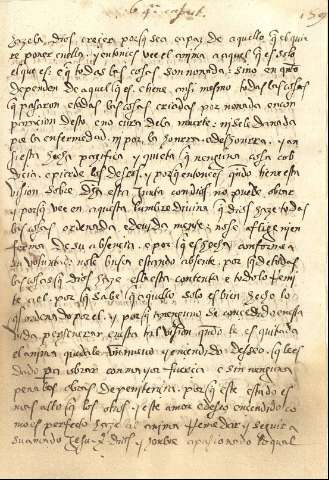 hazela dios crecer porq̃ sea capaz de aquello q̃ el quie
re poner en ella. y entonces vee el anima a aquel q̃ es solo
el que es: e q̃ todas las cosas son nonada: sino en quãto
dependen de aquel q̃ es. e tiene. ansi mesmo todas las cosas
q̃ pasaron e todas las cosas criadas por nonada en con
paraçion desto. e no cura de la muerte. ni se le da nada
por la enfermedad. ni por la honrra. o deshonrra. y an
si esta hecha pacifica y quieta q̃ ninguna cosa cob
dicia. e pierde los deseos. y porq̃ entonces quãdo tiene esta
vision sobre dicha esta junta con dios no puede obrar
y porq̃ vee en aquesta lumbre divina q̃ dios haze todas
las cosas ordenada e devida mente: no se aflige ni en
forma de su absencia. e por q̃ es hecha conforme a
su voluntad no le busca estando absente. por q̃ de todas
las cosas q̃ dios haze ella esta contenta e todo lo remi
te a el. por q̃ sabe q̃ aquello solo es bien hecho lo
q̃ ordenado por el. y porq̃ a ninguno es concedido en esta
vida perseverar en esta tal vision quãdo le es quitada
el anima quedale un nuevo y encendido deseo. q̃ le es
dado pa obrar con mayor fuerça e sin ninguna
pena las obras de penitencia. porq̃ este estado es
mas alto q̃ los otros. y este amor e deseo encendido co
mo es perfecto haze al anima remedar y seguir a
su amado Jesu x̃o dios y hombre apasionado lo qual